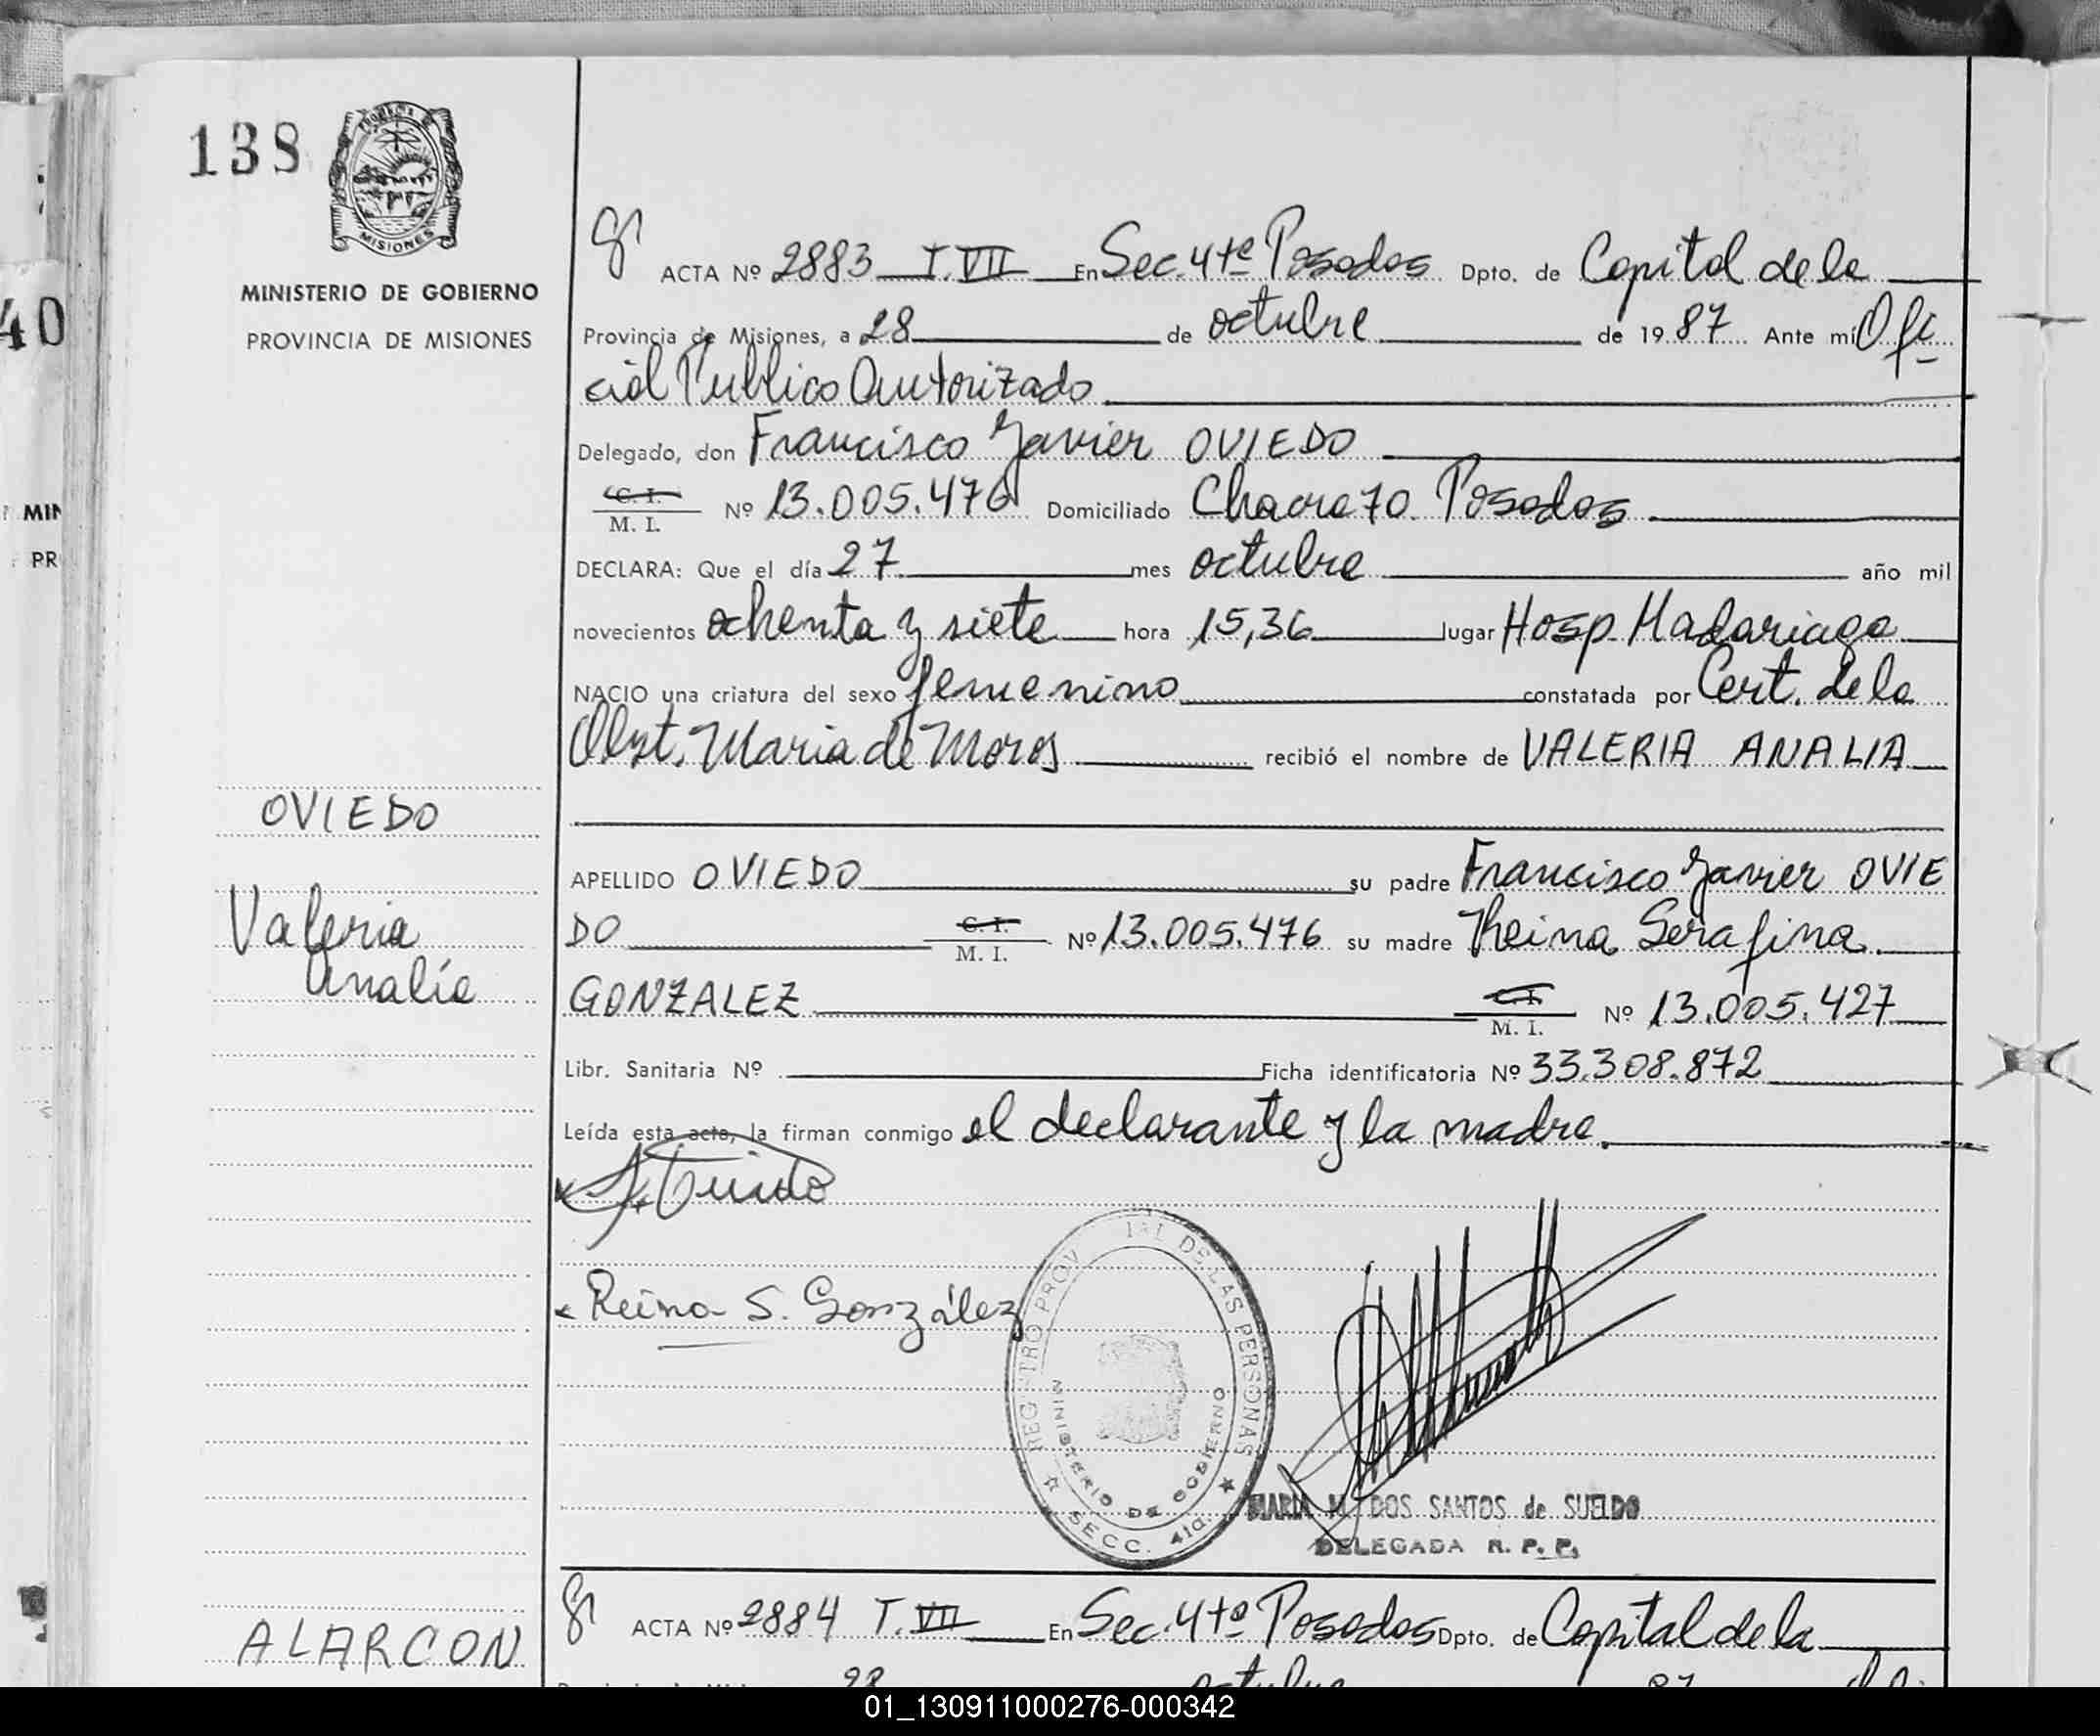 138
MISIONES
MINISTERIO DE GOBIERNO
PROVINCIA DE MISIONES
40
MIN
PR
ACTA Nº 2883 T. VII En Sec. 4ta Posadas Dpto. de Capital de la
Provincia de Misiones, a 28 de octubre de 1987 Ante mí Ofi
cial Publico Autorizado
Delegado, don Francisco Javier OVIEDO
C. I.
M. I. Nº 13.005.476 Domiciliado Chacra 70. Posadas
DECLARA: Que el día 27 mes octubre año mil
novecientos ochenta y siete hora 15,36 lugar Hosp. Madariaga
NACIO una criatura del sexo femenino constatada por Cert. de la
Obst. Maria de Moros recibió el nombre de VALERIA ANALIA
OVIEDO
Valeria
Analía
APELLIDO OVIEDO su padre Francisco Javier OVIE
DO C. I. M. I. Nº 13.005.476 su madre Reina Serafina
GONZALEZ C. I. M. I. Nº 13.005.427
Libr. Sanitaria Nº Ficha identificatoria Nº 33.308.872
Leída esta acta, la firman conmigo el declarante y la madre.
Reina S. González
REGISTRO PROV IAL DE LAS PERSONAS
MINISTERIO DE GOBIERNO
SECC. 4ta.
MARIA M. DOS SANTOS de SUELDO
DELEGADA R. P. P.
ALARCON
ACTA Nº 2884 T. VII En Sec. 4ta Posadas Dpto. de Capital de la
28 octubre 87
01_130911000276-000342